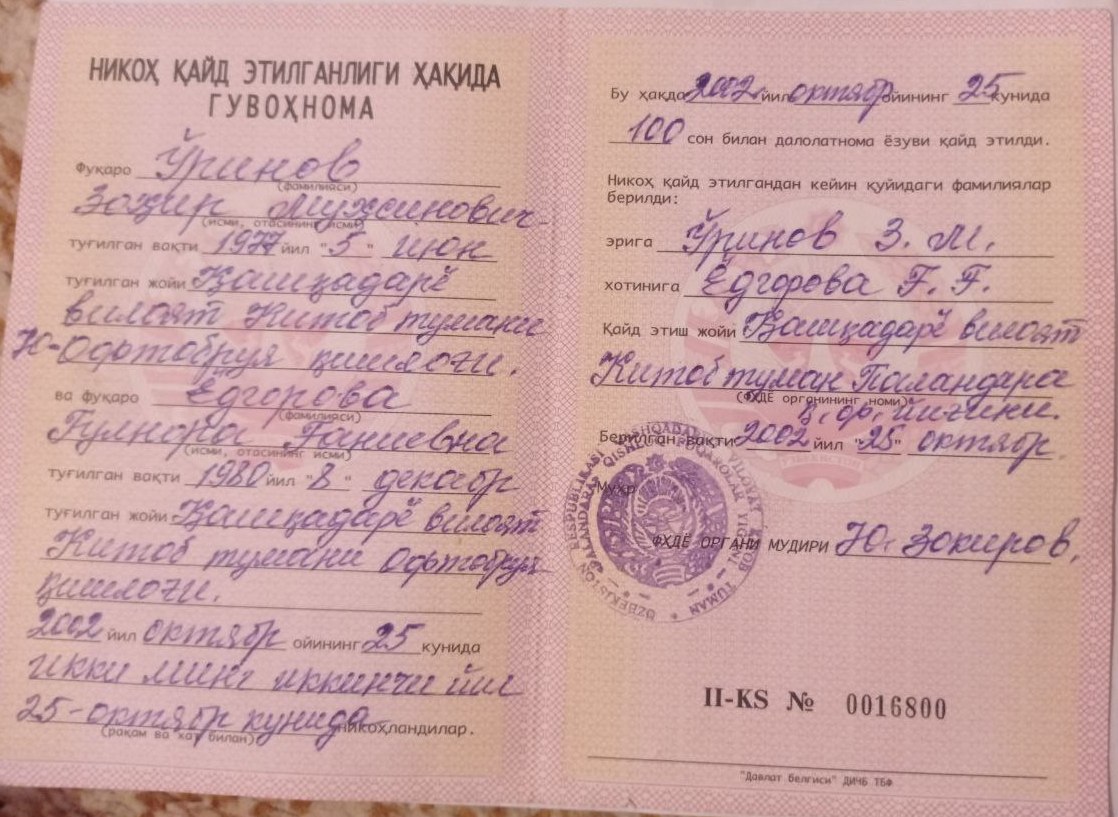 НИКОҲ ҚАЙД ЭТИЛГАНЛИГИ ҲАҚИДА
ГУВОҲНОМА
Фуқаро Ўринов
(фамилияси)
Зоҳир Муҳсинович
(исми, отасининг исми)
туғилган вақти 1977 йил "5" июн
туғилган жойи Қашқадарё
вилоят Китоб тумани
Ю-Офтобруя қишлоғи.
ва фуқаро Ёдгорова
(фамилияси)
Гулнора Ғаниевна
(исми, отасининг исми)
туғилган вақти 1980 йил "8" декабр
туғилган жойи Қашқадарё вилоят
Китоб тумани Офтобруя
қишлоғи.
2002 йил октябр ойининг 25 кунида
икки минг иккинчи йил
25-октябр кунида никоҳландилар.
(рақам ва хат билан)
Бу ҳақда 2002 йил октябр ойининг 25 кунида
100 сон билан далолатнома ёзуви қайд этилди.
Никоҳ қайд этилгандан кейин қуйидаги фамилиялар
берилди:
эрига Ўринов З. М.
хотинига Ёдгорова Ғ. Ғ.
Қайд этиш жойи Қашқадарё вилоят
Китоб туман Паландара
(ФҲДЁ органининг номи)
қ. фр. йиғини.
Берилган вақти 2002 йил "25" октябр.
Муҳр
ФҲДЁ ОРГАНИ МУДИРИ Ю. Зокиров.
II-KS № 0016800
"Давлат белгиси" ДИЧБ ТБФ